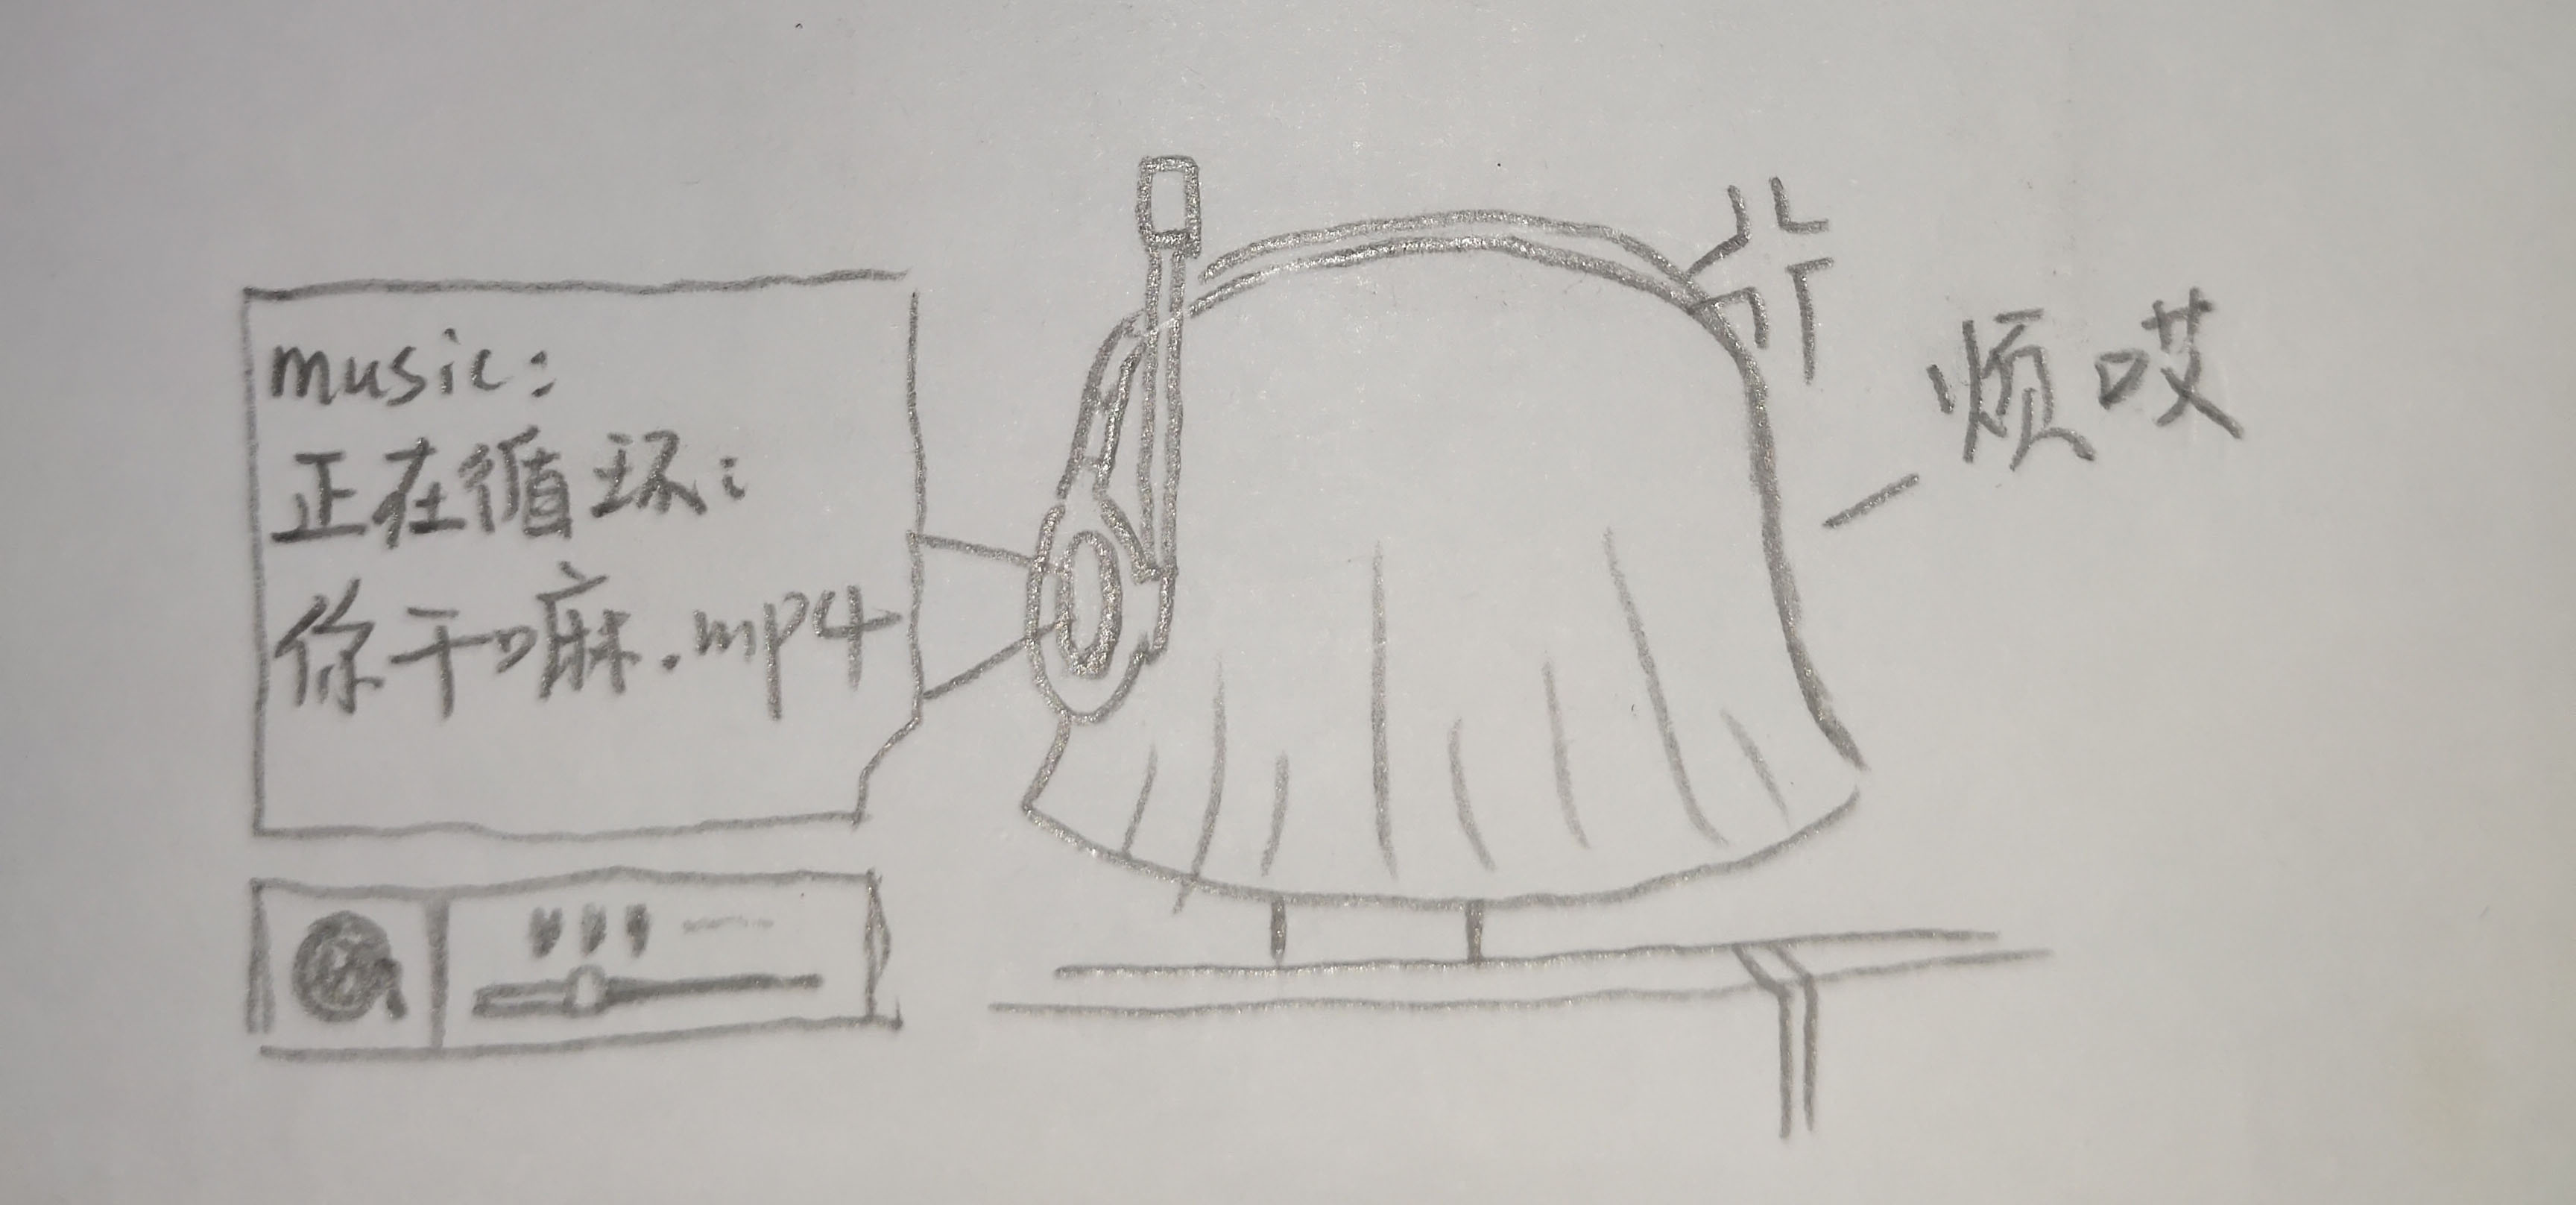 music:
正在循环:
你干嘛.mp4
烦哎